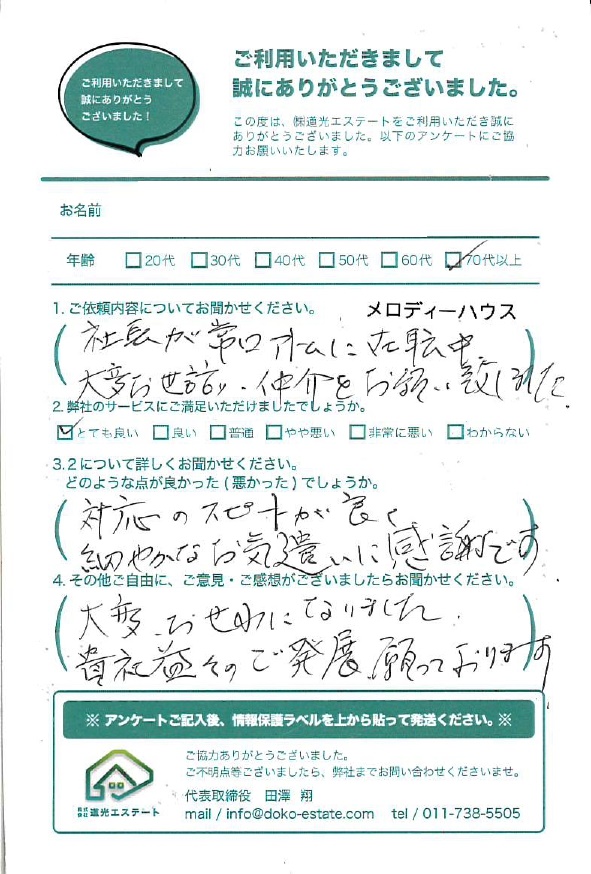 ご利用いただきまして
誠にありがとう
ございました！
ご利用いただきまして
誠にありがとうございました。
この度は、㈱道光エステートをご利用いただき誠に
ありがとうございました。以下のアンケートにご協
力お願いいたします。
お名前
年齢 □20代 □30代 □40代 □50代 □60代 ☑70代以上
1. ご依頼内容についてお聞かせください。 メロディーハウス
社長が常口アトムに在職中
大変お世話に、仲介をお願い致しました。
2. 弊社のサービスにご満足いただけましたでしょうか。
☑とても良い □良い □普通 □やや悪い □非常に悪い □わからない
3. 2について詳しくお聞かせください。
どのような点が良かった(悪かった)でしょうか。
対応のスピードが良く
細やかなお気遣いに感謝です
4. その他ご自由に、ご意見・ご感想がございましたらお聞かせください。
大変、お世わになりました。
貴社益々のご発展、願っております。
※ アンケートご記入後、情報保護ラベルを上から貼って発送ください。※
ご協力ありがとうございました。
ご不明点等ございましたら、弊社までお問い合わせくださいませ。
代表取締役 田澤 翔
株式会社 道光エステート
mail / info@doko-estate.com tel / 011-738-5505